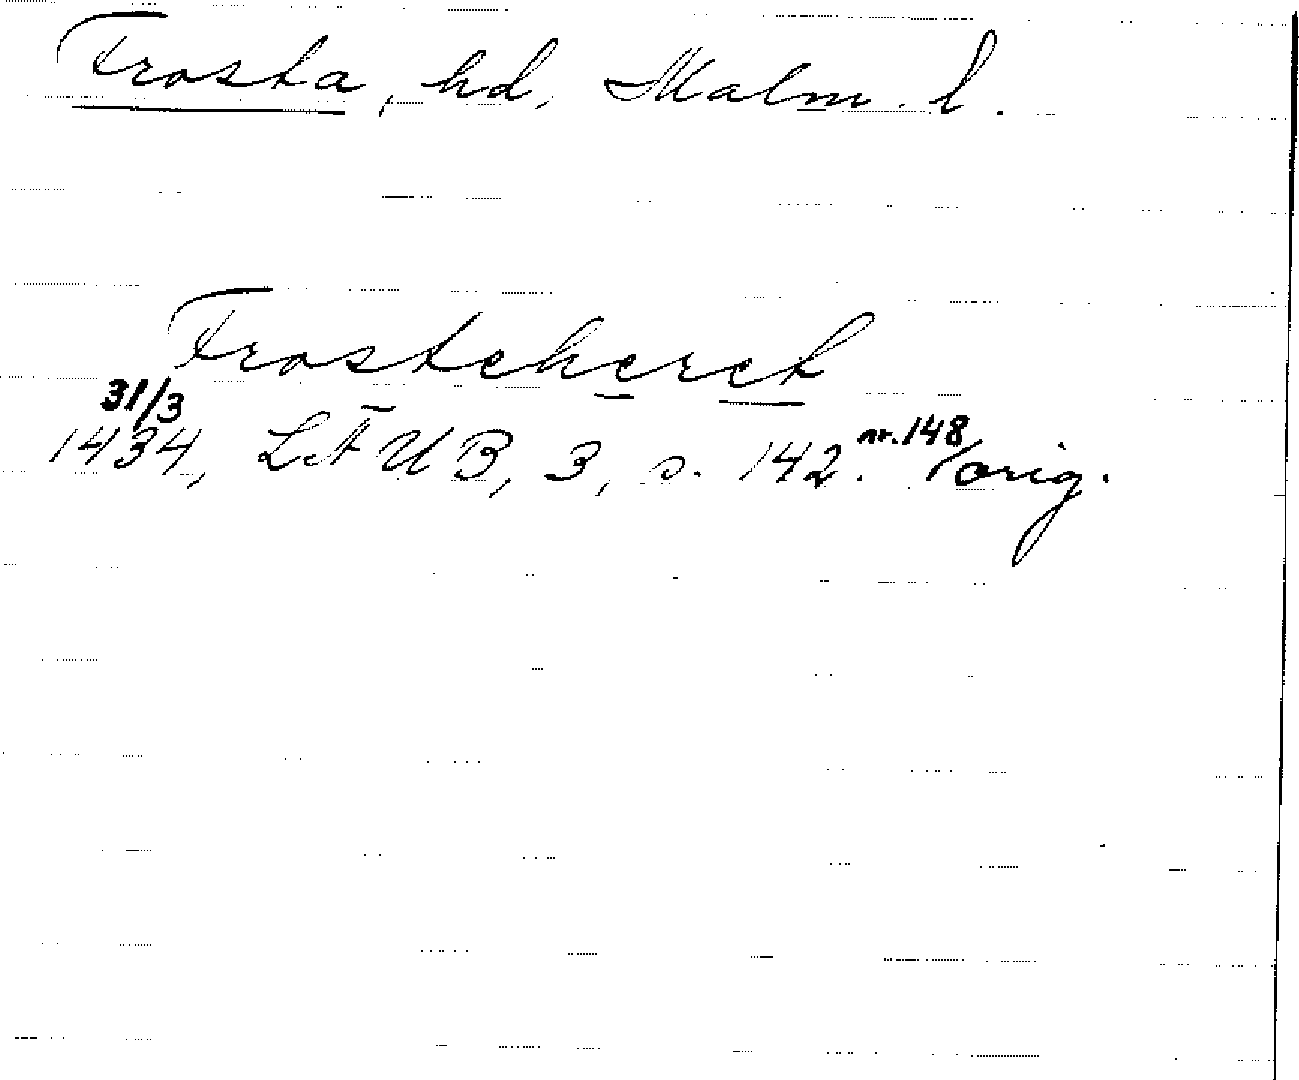 Frosta, hd, Malm. l.
Frosteheret
31/3
1434, LÄUB, 3, s. 142. nr. 148 orig.